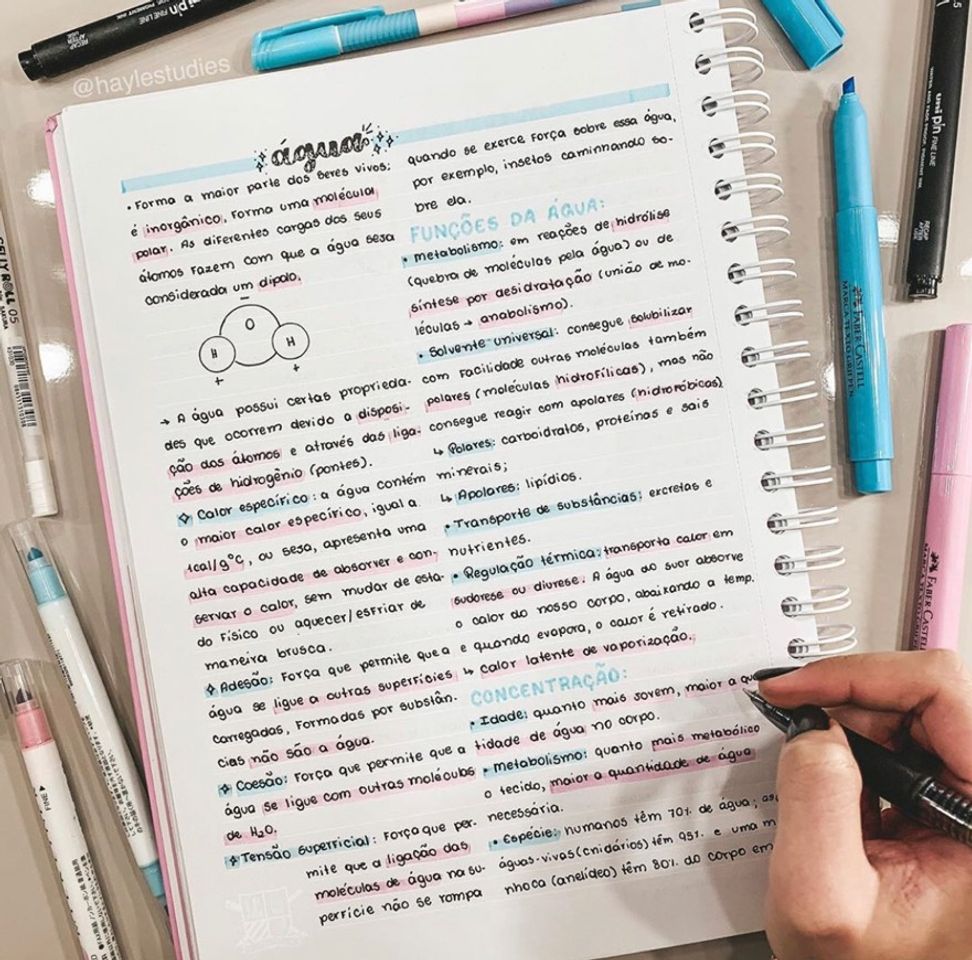 @haylestudies
água
• Forma a maior parte dos seres vivos;
é inorgânico, forma uma molécula
polar. As diferentes cargas dos seus
átomos fazem com que a água seja
considerada um dipolo.
−
O
H H
+ +
→ A água possui certas proprieda-
des que ocorrem devido a disposi-
ção dos átomos e através das liga-
ções de hidrogênio (pontes).
Calor específico: a água contém
o maior calor específico, igual a
1cal/g°C, ou seja, apresenta uma
alta capacidade de absorver e con-
servar o calor, sem mudar de esta-
do físico ou aquecer/esfriar de
maneira brusca.
Adesão: Força que permite que a
água se ligue a outras superfícies
carregadas, formadas por substân-
cias não são a água.
Coesão: Força que permite que a
água se ligue com outras moléculas
de H₂O.
Tensão superficial: Força que per-
mite que a ligação das
moléculas de água na su-
perfície não se rompa
quando se exerce força sobre essa água,
por exemplo, insetos caminhando so-
bre ela.
FUNÇÕES DA ÁGUA:
• metabolismo: em reações de hidrólise
(quebra de moléculas pela água) ou de
síntese por desidratação (união de mo-
léculas → anabolismo).
• Solvente universal: consegue solubilizar
com facilidade outras moléculas também
polares (moléculas hidrofílicas), mas não
consegue reagir com apolares (hidrofóbicas)
↳ Polares: carboidratos, proteínas e sais
minerais;
↳ Apolares: lipídios.
• Transporte de substâncias: excretas e
nutrientes.
• Regulação térmica: transporta calor em
sudorese ou diurese. A água do suor absorve
o calor do nosso corpo, abaixando a temp.
e quando evapora, o calor é retirado.
↳ calor latente de vaporização.
CONCENTRAÇÃO:
• Idade: quanto mais jovem, maior a qu
tidade de água no corpo.
• Metabolismo: quanto mais metabólico
o tecido, maior a quantidade de água
necessária.
• Espécie: humanos têm 70% de água; as
águas-vivas (cnidários) têm 95% e uma m
nhoca (anelídeo) têm 80% do corpo em
uni pin FINE LINE
FABER CASTELL
MARCA TEXTO GRIFPEN
FABER CASTELL
GELLY ROLL 05
FINE